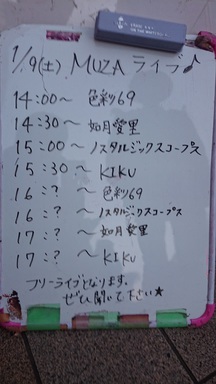 1/9(土) MUZA ライブ♪
14:00～ 色彩69
14:30～ 如月愛里
15:00～ノスタルジックスコープス
15:30～KIKU
16:?～色彩69
16:?～ノスタルジックスコープス
17:?～如月愛里
17:?～KIKU
フリーライブとなります。
ぜひ聞いて下さい★